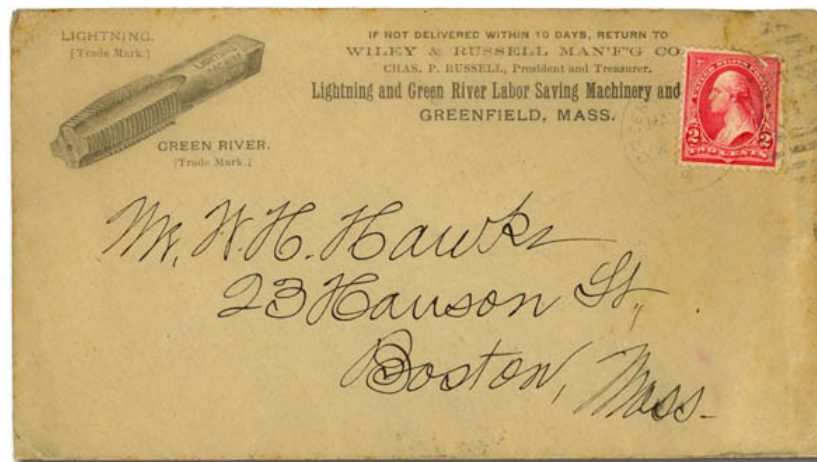 LIGHTNING.
[Trade Mark.]
LIGHTNING
GREEN RIVER.
[Trade Mark.]
IF NOT DELIVERED WITHIN 10 DAYS, RETURN TO
WILEY & RUSSELL MAN'F'G CO
CHAS. P. RUSSELL, President and Treasurer.
Lightning and Green River Labor Saving Machinery and
GREENFIELD, MASS.
UNITED STATES POSTAGE
2 2
TWO CENTS
Mr. W. H. Hawks
23 Hanson St.,
Boston, Mass.